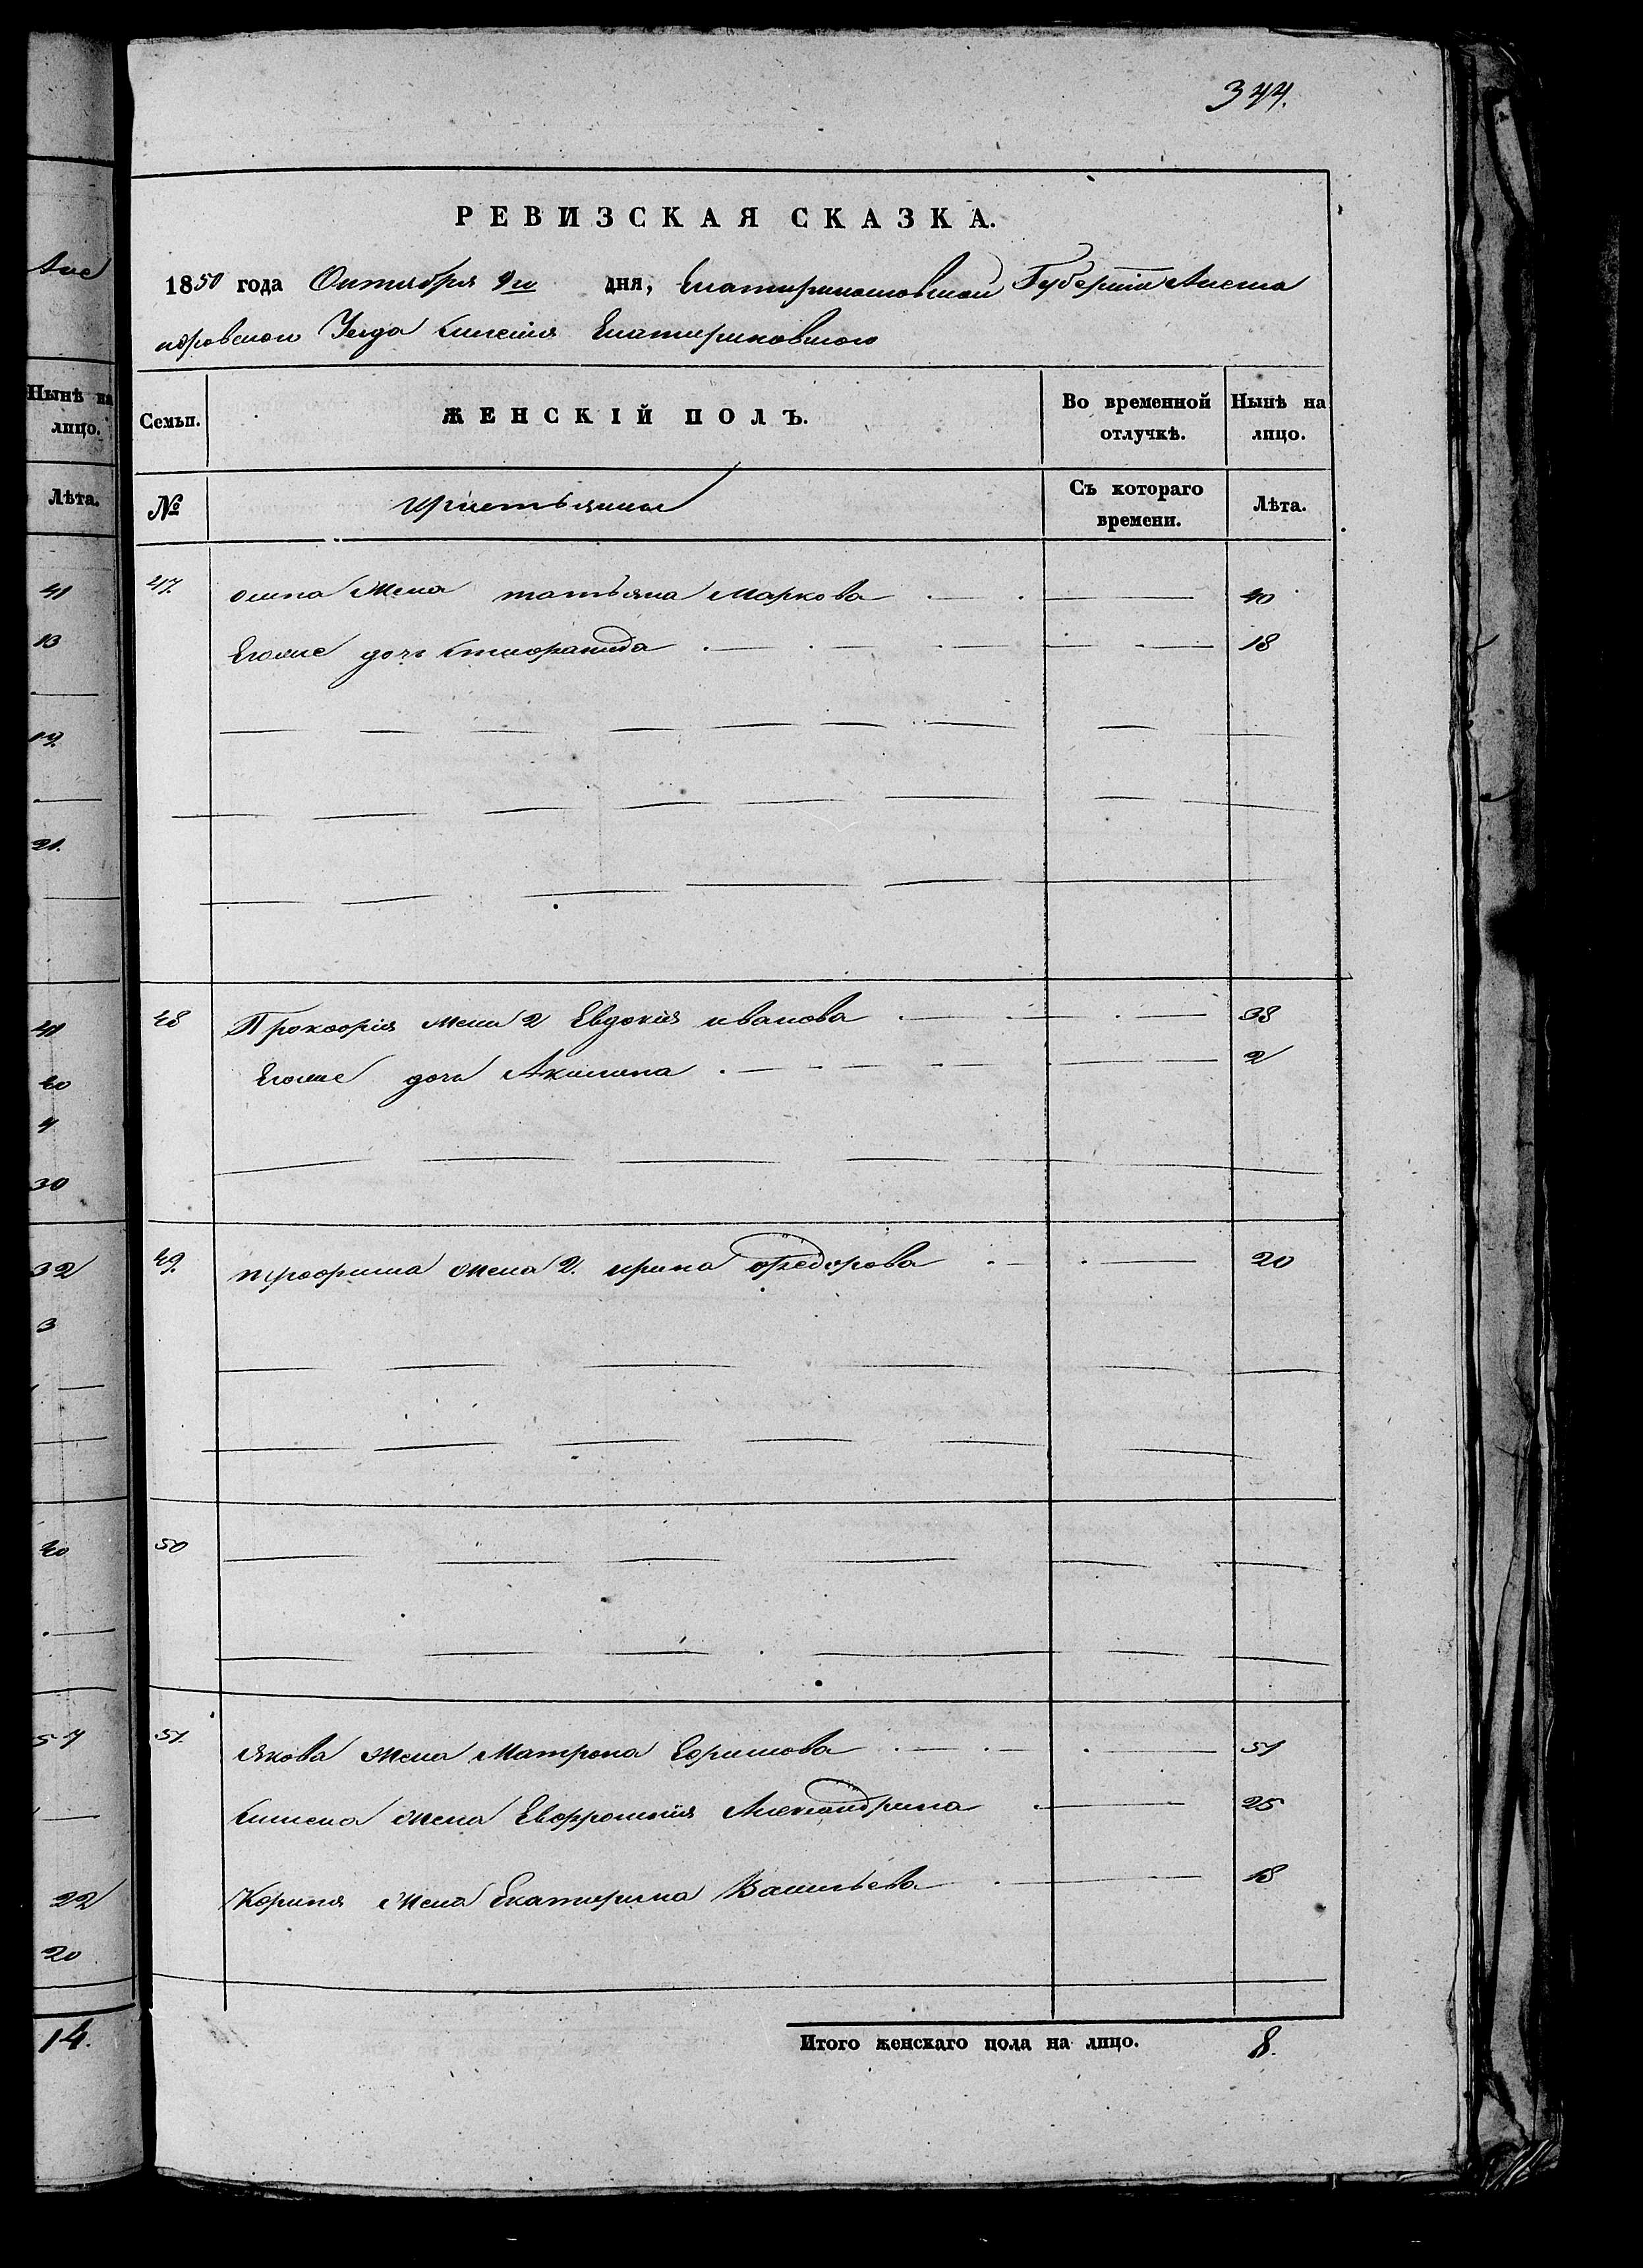 344.
Але
РЕВИЗСКАЯ СКАЗКА.
1850 года Октября 9го дня, Екатеринославской Губерніи Алекса
ндровскаго Уезда селенія Екатериновского
Нынѣ на
лицо.
Лѣта.
Семьи. ЖЕНСКІЙ ПОЛЪ. Во временной отлучкѣ. Нынѣ на лицо.
№ Съ котораго времени. Лѣта.
47. осипа жена татьяна Маркова 40
Еговые дочь Степанида 18
48 Прокофія жена 2 Евдокія иванова 38
Еговые дочь Акилина 2
49. трофима жена 2. ирина федорова 20
50
51. Якова жена Матрона Ефимова 51
Семена жена Евфросинія Александрина 25
жена Екатерина Васильева 18
Итого женскаго пола на лицо. 8.
41
13
19.
21.
41
40
4
30
32
3
40
57
22
20
14.